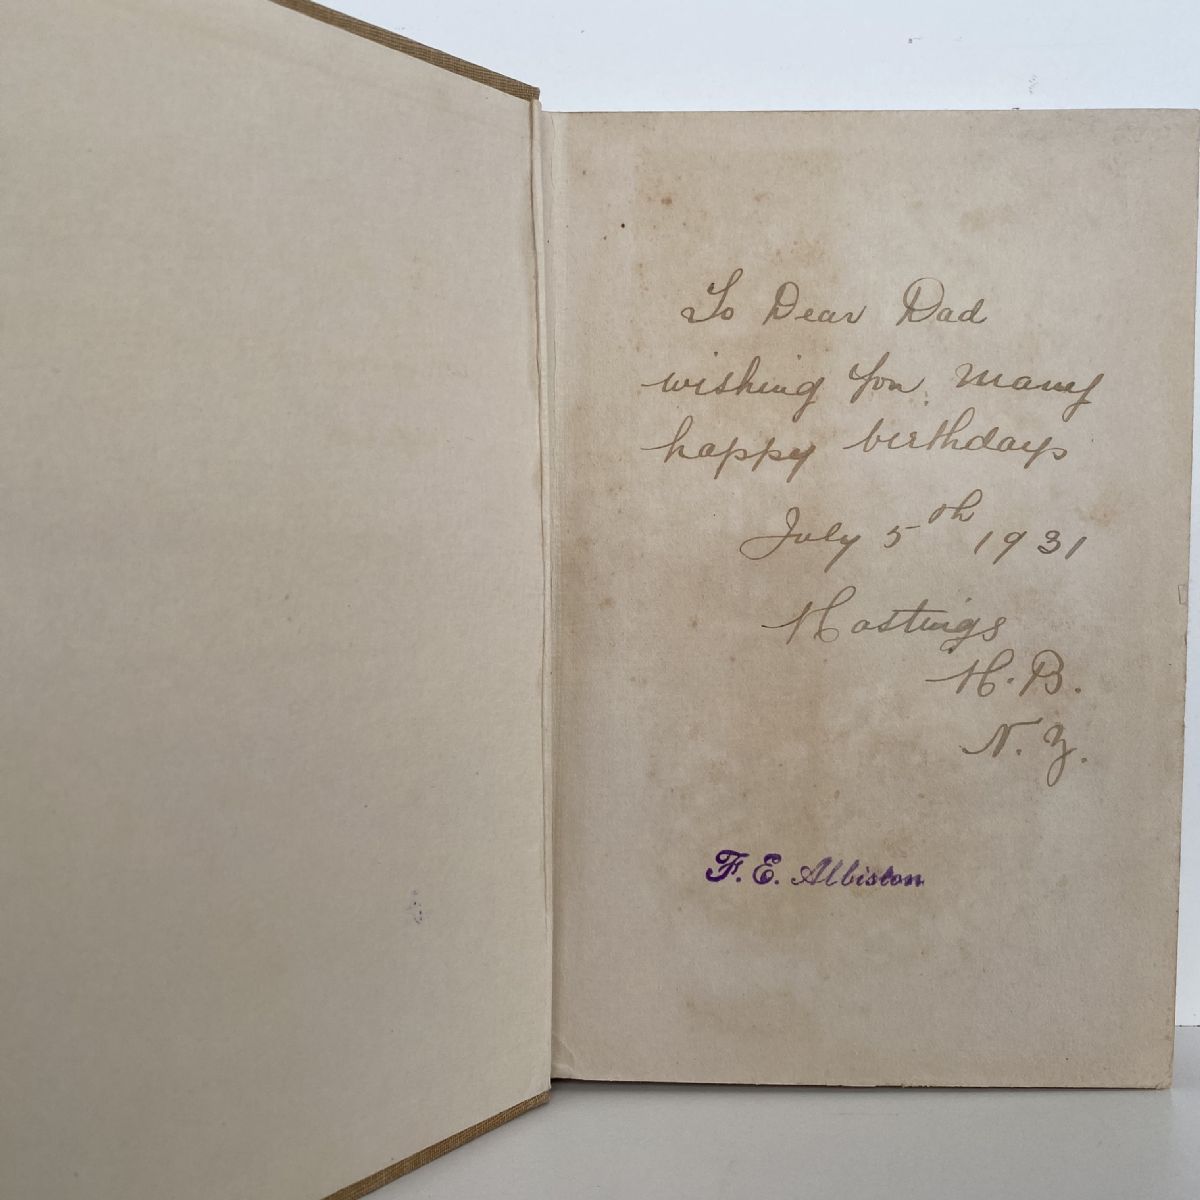 To Dear Dad
wishing you many
happy birthdays
July 5th 1931
Hastings
H.B.
N.Z.
F. E. Albiston